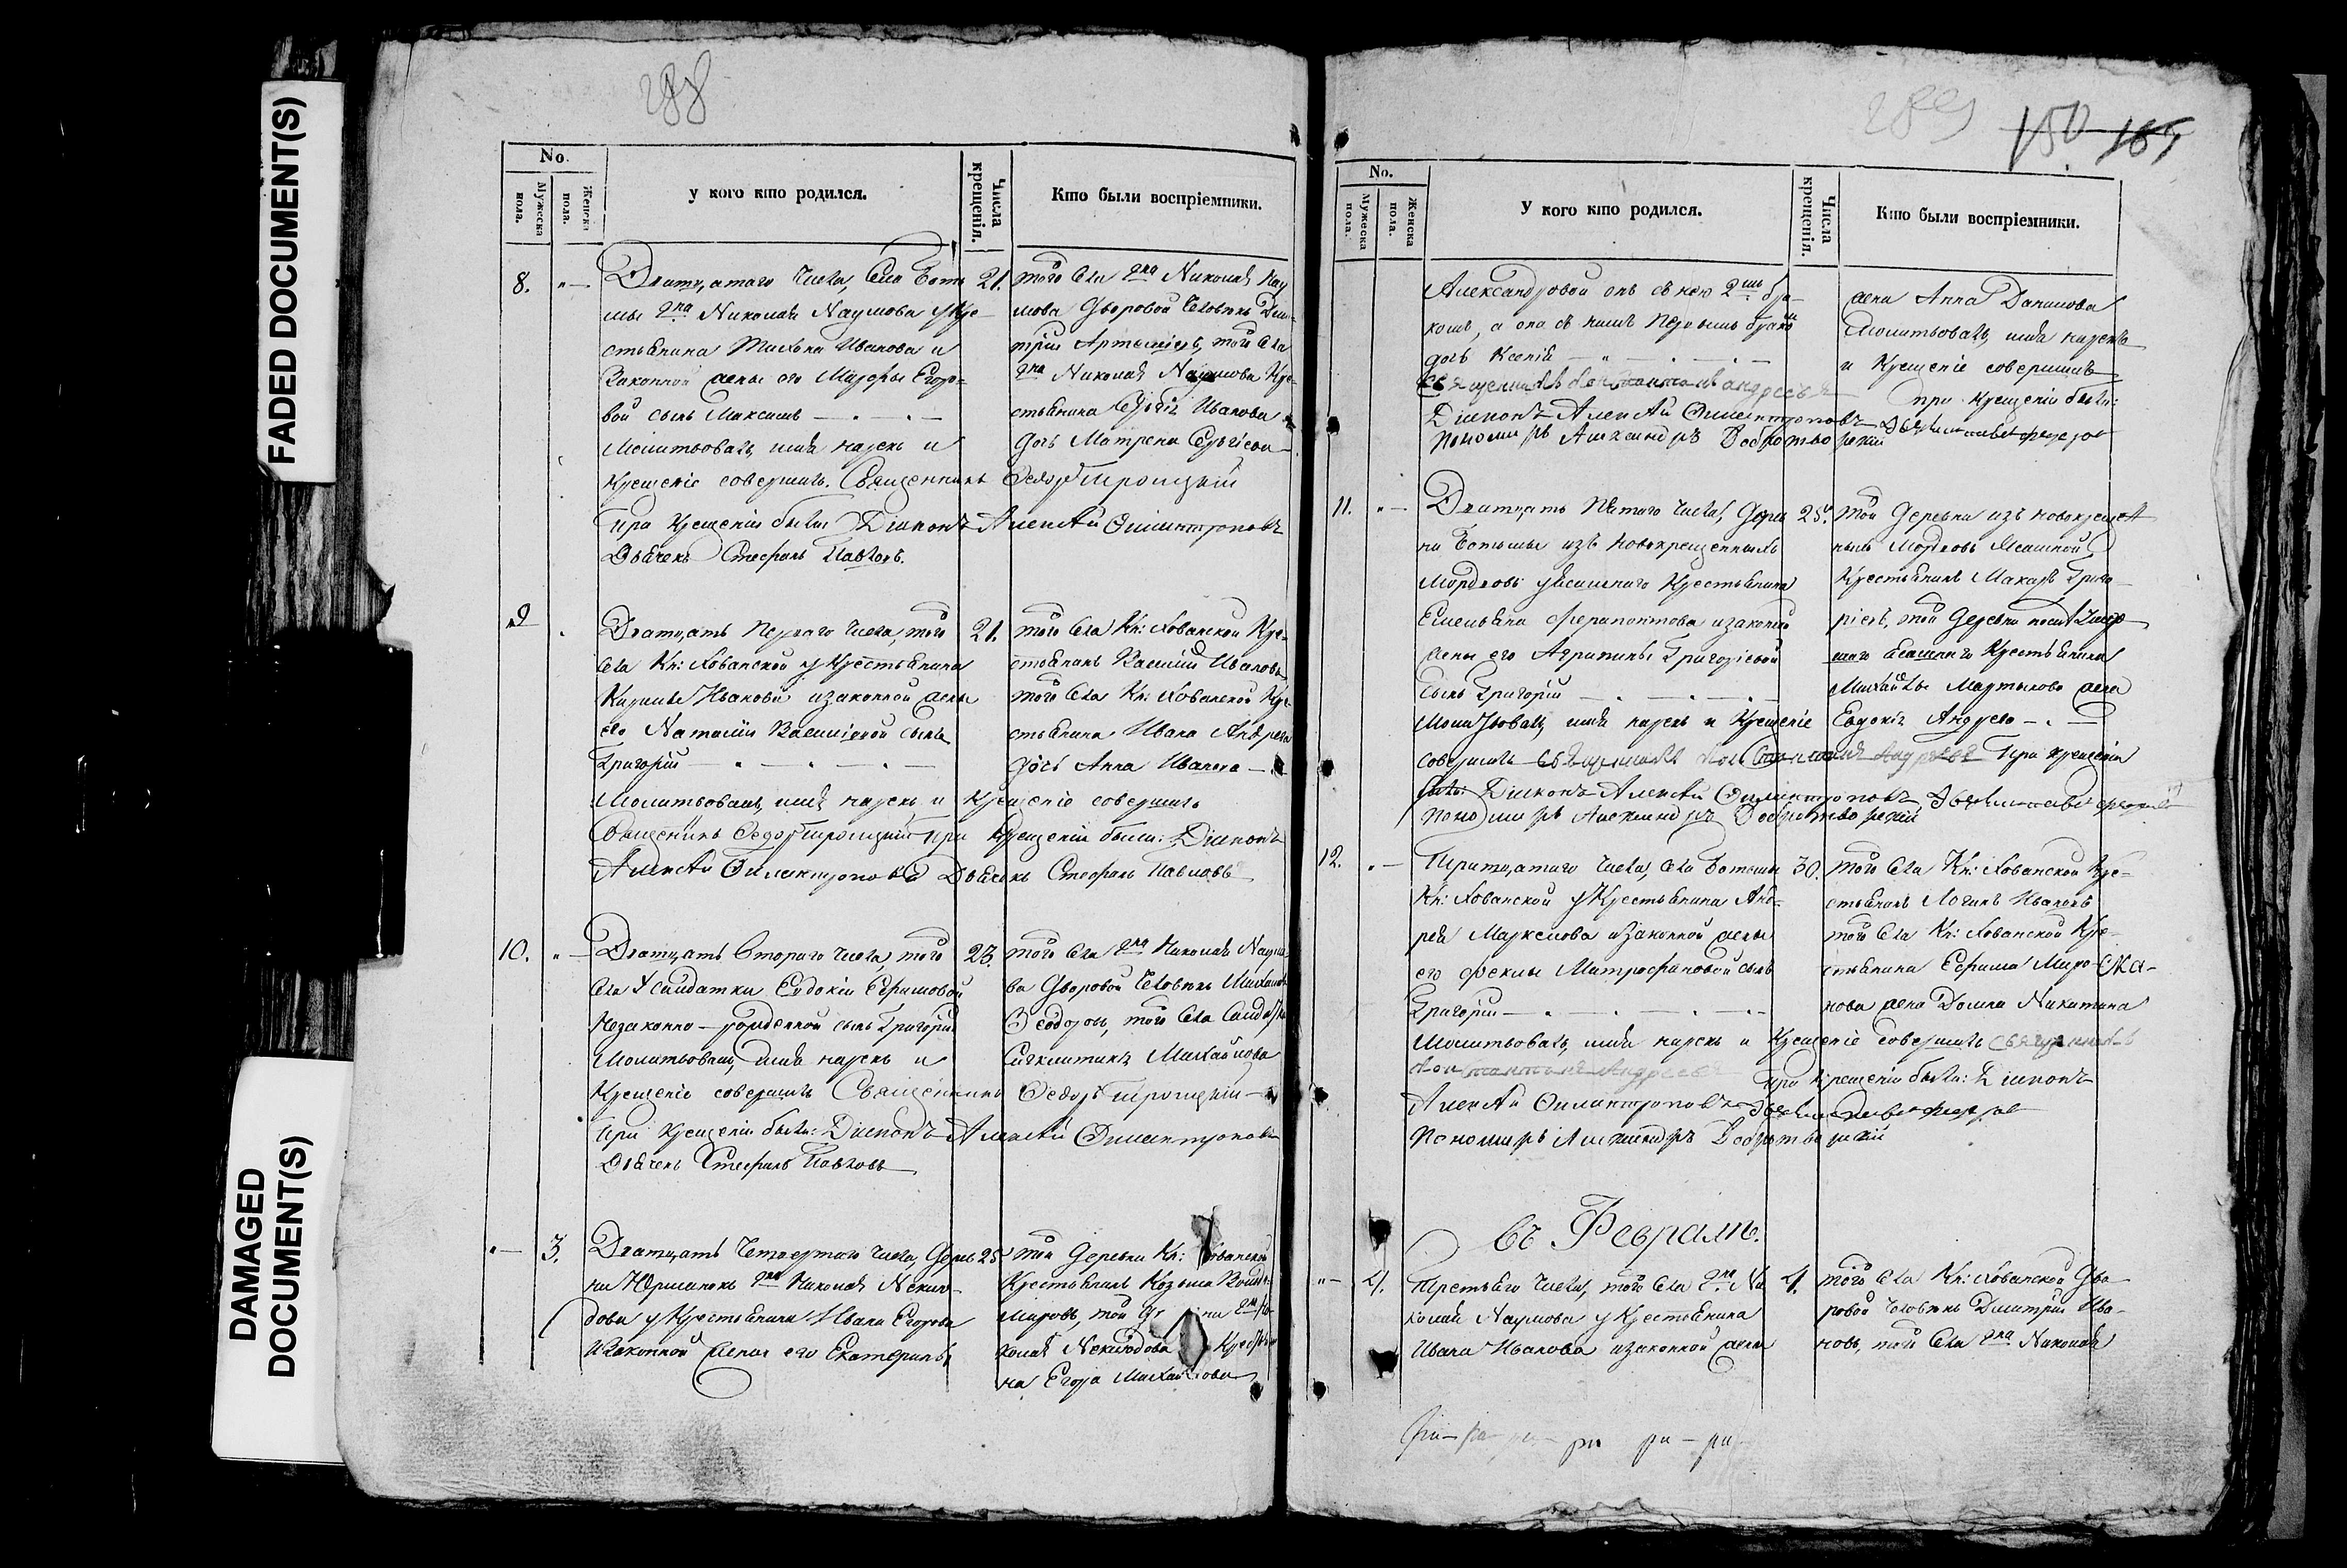 FADED DOCUMENT(S)
DAMAGED
DOCUMENT(S)
288
No.
Мужеска пола.
Женска пола.
у кого кто родился.
Числа крещенія.
Кто были воспріемники.
8. Дватцатаго Числа, Села Боть
мы г-на Николая Наумова у Кре-
стьянина Тихона Иванова и
Законной жены его Маѵры Егоро-
вой сынъ Максимъ
Молитвовалъ, имя нарекъ и
Крещеніе совершилъ. Священникъ Ѳедоръ Троицкій
При Крещеніи были Діаконъ Алексѣй Филантроповъ
Дьячекъ Стефанъ Павловъ.
21. того Села г-на Николая Нау
мова Дворовой Человѣкъ Дми-
трій Артемьевъ, того Села
г-на Николая Наумова Кре-
стьянина Сергія Иванова
дочь Матрена Сергіева
9 Дватцать Перваго Числа, того
Села Кн: Хованской у Крестьянина
Кирилы Иванова изаконной жены
его Наталіи Васильевой сынъ
Григорій
Молитвовалъ, имя нарекъ и Крещеніе совершилъ
Священникъ Ѳедоръ Троицкій при Крещеніи были: Діаконъ
Алексѣй Филантроповъ Дьячекъ Стефанъ Павловъ
21. того Села Кн: Хованской Кре-
стьянинъ Василій Ивановъ
того Села Кн: Хованской Кре-
стьянина Ивана Андреева
дочь Анна Иванова
10. Дватцать Втораго Числа, того
Села У Салдатки Евдокіи Ефимовой
Незаконно-рожденной сынъ Григорій
Молитвовалъ, имя нарекъ и
Крещеніе совершилъ Священникъ Ѳедоръ Троицкій
При Крещеніи были: Діаконъ Алексѣй Филантроповъ
Дьячекъ Стефанъ Павловъ
23. того Села г-на Николая Наумо-
ва Дворовой Человѣкъ Михаилъ
Ѳеодоровъ, того Села
Михайлова
3. Дватцать Четвертаго Числа, Дерев
ни Юрманокъ г-на Николая Неклю-
дова у Крестьянина Ивана Егорова
Изаконной жены его Екатерины
25 той Деревни Кн: Хованской
Крестьянинъ Козьма
мировъ, той
колая Неклюдова Крестьяни
на Егора Михайлова
289
150 165
No.
Мужеска пола.
Женска пола.
У кого кто родился.
Числа крещенія.
Кто были воспріемники.
Александровой онъ съ нею 2-мъ бра-
комъ, а она съ нимъ Первымъ бракомъ
дочь Ксенія
Священникъ Константинъ Андреевъ
Діаконъ Алексѣй Филантроповъ
Пономарь Александръ Добротворскій
жена Анна Данилова
Молитвовалъ, имя нарекъ
и Крещеніе совершилъ
при крещеніи были:
11. Дватцать Пятаго Числа, Дерев
ни Ботьмы изъ Новокрещенныхъ
Мордовъ уясашнаго Крестьянина
Емельяна Ферапонтова изаконной
жены его Агрипины Григорьевой
Сынъ Григорій
Молитвовалъ, имя нарекъ и Крещеніе
совершилъ Священникъ Константинъ Андреевъ При крещеніи
были: Діаконъ Алексѣй Филантроповъ
Пономарь Александръ Добротворскій
25. той Деревни изъ новокрещен
ныхъ Мордовъ Ясашной
Крестьянинъ Макаръ Григо-
рьевъ, той Деревни умер
шаго Ясашнаго Крестьянина
Михайлы Мартынова жена
Евдокія Андрева
12. Тритцатаго Числа, Села Ботьмы
Кн: Хованской у Крестьянина Анд-
рея Маркелова изаконной жены
его Феклы Митрофановой сынъ
Григорій
Молитвовалъ, имя нарекъ и Крещеніе совершилъ Священникъ
Константинъ Андреевъ при крещеніи были: Діаконъ
Алексѣй Филантроповъ
Пономарь Александръ Добротворскій
30. того Села Кн: Хованской Кре-
стьянинъ Логинъ Ивановъ
того Села Кн: Хованской Кре-
стьянина Ефима
нова жена Домна Никитина
Въ Февралѣ.
4. Третьяго Числа, того Села г-на Ни
колая Наумова у Крестьянина
Ивана Иванова изаконной жены
4. того Села Кн: Хованской Дво-
ровой Человѣкъ Дмитрій Ива-
новъ, того Села г-на Николая
ри ри ри